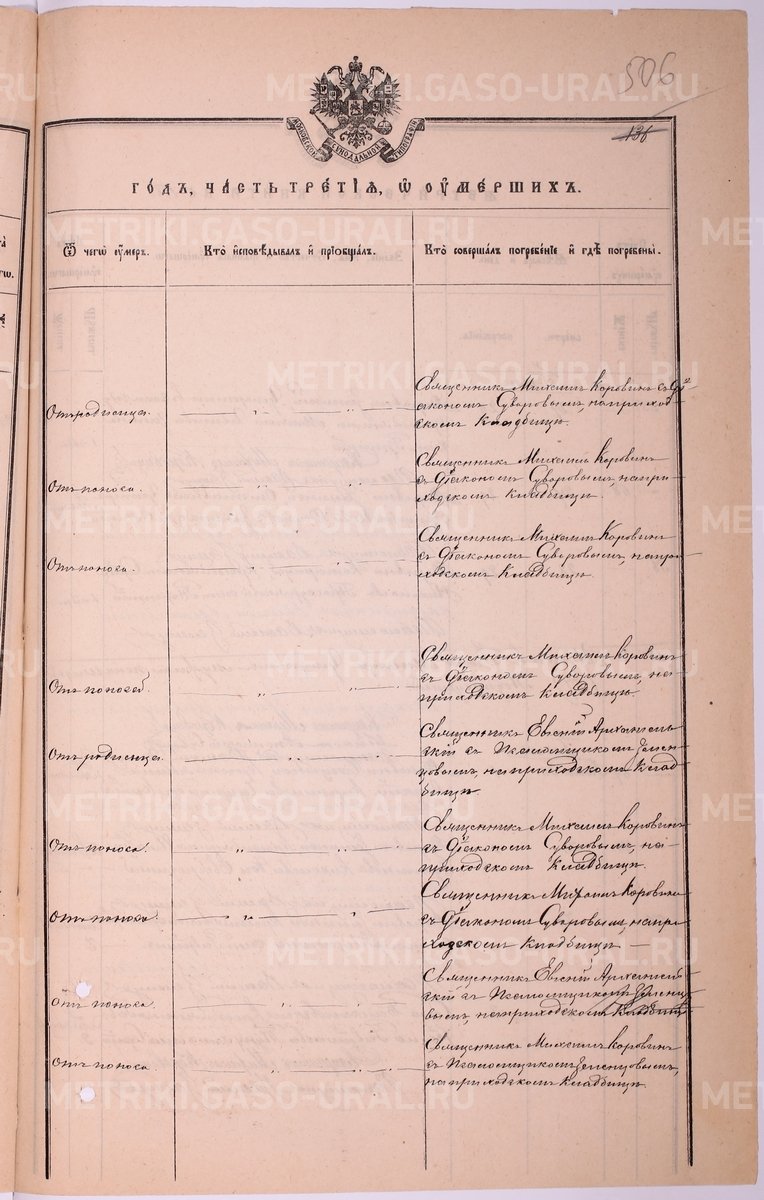 506
136
МОСКОВСКОЙ СѴНОДАЛЬНОЙ ТИПОГРАФІИ
ГОДЪ, ЧАСТЬ ТРЕТІЯ, Ѿ ОУМЕРШИХЪ.
Ѿ чегѡ оумеръ.
Кто исповѣдывалъ и пріобщалъ.
Кто совершалъ погребеніе и гдѣ погребены.
Отъ родимца.
Священникъ Михаилъ Коровинъ съ Ді-
акономъ Суворовымъ, на приход-
скомъ кладбищѣ.
Отъ поноса.
Священникъ Михаилъ Коровинъ
съ Діакономъ Суворовымъ, на при-
ходскомъ кладбищѣ.
Отъ поноса.
Священникъ Михаилъ Коровинъ
съ Діакономъ Суворовымъ, на при-
ходскомъ кладбищѣ.
Отъ
Священникъ Михаилъ Коровинъ
съ Діакономъ Суворовымъ, на
приходскомъ кладбищѣ.
Отъ родимца.
Священникъ Евгеній Архангель-
скій съ Псаломщикомъ Земен-
цовымъ, на приходскомъ клад-
бищѣ.
Отъ поноса.
Священникъ Михаилъ Коровинъ
съ Діакономъ Суворовымъ, на
приходскомъ кладбищѣ.
Отъ поноса.
Священникъ Михаилъ Коровинъ
съ Діакономъ Суворовымъ, на при-
ходскомъ кладбищѣ.
Отъ поноса.
Священникъ Евгеній Архангель-
скій съ Псаломщикомъ Земенцо-
вымъ, на приходскомъ кладбищѣ.
Отъ поноса.
Священникъ Михаилъ Коровинъ
съ Псаломщикомъ Земенцовымъ,
на приходскомъ кладбищѣ.
METRIKI.GASO-URAL.RU